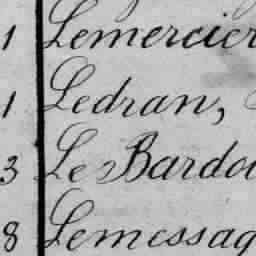 1 Lemercier
1 Ledran,
3 Le Bardo
8 Lemessag